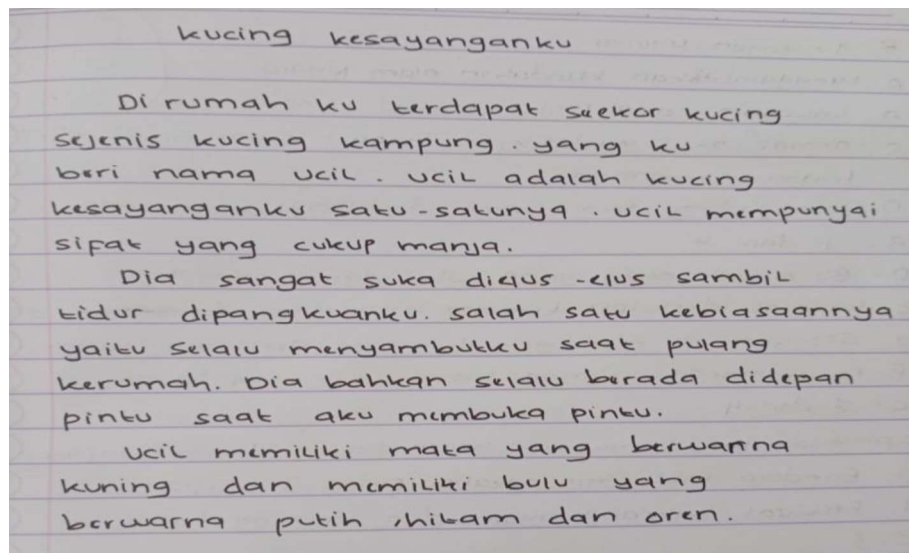 kucing kesayanganku
Di rumah ku terdapat suekor kucing
sejenis kucing kampung. yang ku
beri nama ucil. ucil adalah kucing
kesayanganku satu-satunya. ucil mempunyai
sifat yang cukup manja.
Dia sangat suka dielus-elus sambil
tidur dipangkuanku. salah satu kebiasaannya
yaitu selalu menyambutku saat pulang
kerumah. Dia bahkan selalu berada didepan
pintu saat aku membuka pintu.
ucil memiliki mata yang berwarna
kuning dan memiliki bulu yang
berwarna putih, hitam dan oren.